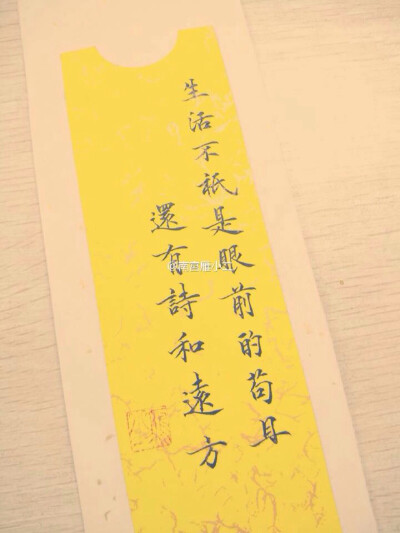 生活不祇是眼前的苟且
還有詩和遠方